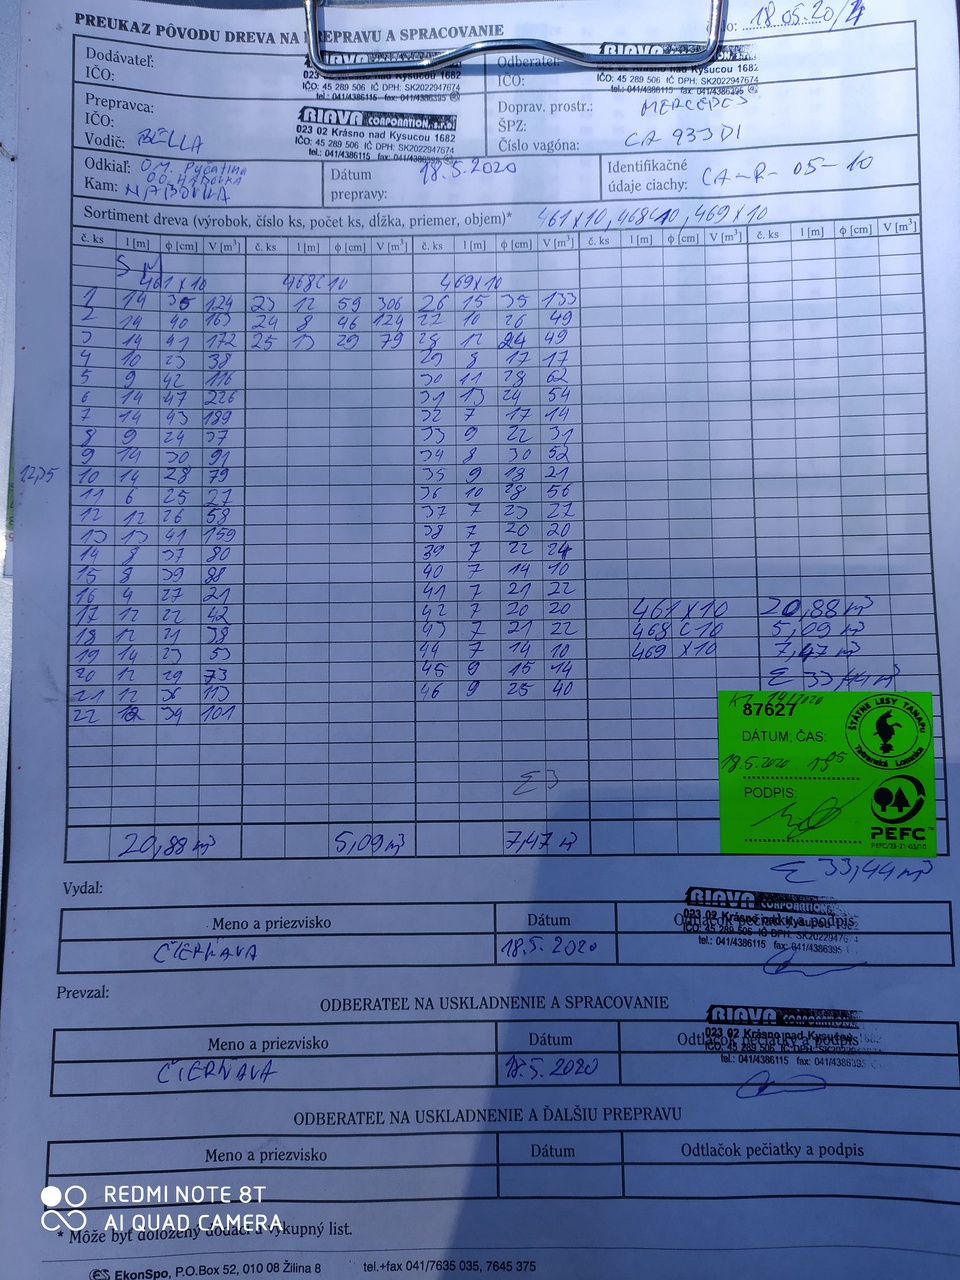 PREUKAZ PÔVODU DREVA NA PREPRAVU A SPRACOVANIE
18.05.20/4
Dodávateľ:
IČO:
RIAVA
023 02 Krásno nad Kysucou 1682
IČO: 45 289 506 IČ DPH: SK2022947674
tel.: 041/4386115 fax: 041/4386395
Odberateľ
IČO:
RIAVA
023 02 Krásno nad Kysucou 1682
IČO: 45 289 506 IČ DPH: SK2022947674
tel.: 041/4386115 fax: 041/4386395
Prepravca:
IČO:
Vodič: BELLA
RIAVA CORPORATION, s.r.o.
023 02 Krásno nad Kysucou 1682
IČO: 45 289 506 IČ DPH: SK2022947674
tel.: 041/4386115 fax: 041/4386395
Doprav. prostr.: MERCEDES
ŠPZ:
Číslo vagóna: CA 933DI
Odkiaľ:
Kam:
Dátum prepravy: 18.5.2020
Identifikačné údaje ciachy: CA-R-05-10
Sortiment dreva (výrobok, číslo ks, počet ks, dĺžka, priemer, objem)* 461X10, 468C10, 469X10
č. ks l [m] ϕ [cm] V [m³] č. ks l [m] ϕ [cm] V [m³] č. ks l [m] ϕ [cm] V [m³] č. ks l [m] ϕ [cm] V [m³] č. ks l [m] ϕ [cm] V [m³]
SM
461X10 468C10 469X10
1 14 35 124 23 12 59 306 26 15 35 133
2 14 40 163 24 8 46 124 27 10 26 49
3 14 41 172 25 13 29 79 28 12 24 49
4 10 23 38 29 8 17 17
5 9 42 116 30 11 28 62
6 14 47 226 31 13 24 54
7 14 43 189 32 7 17 14
8 9 24 37 33 9 22 31
9 14 30 91 34 8 30 52
12,35
10 14 28 79 35 9 18 21
11 6 25 27 36 10 28 56
12 12 26 58 37 7 23 27
13 13 41 159 38 7 20 20
14 8 37 80 39 7 22 24
15 8 39 88 40 7 14 10
16 4 27 21 41 7 21 22
17 12 22 42 42 7 20 20 461X10 20,88 m³
18 12 21 38 43 7 21 22 468C10 5,09 m³
19 14 23 53 44 7 14 10 469X10 7,47 m³
20 12 29 73 45 9 15 14 Σ 33,44 m³
21 12 36 113 46 9 25 40
22 12 34 101
87627
ŠTÁTNE LESY TANAPU
Tatranská Lomnica
DÁTUM, ČAS:
18.5.2020
PODPIS:
PEFC™
Σ3
20,88 m³ 5,09 m³ 7,47 m³
Σ 33,44 m³
Vydal:
Meno a priezvisko Dátum Odtlačok pečiatky a podpis
ČIERŇAVA 18.5.2020
RIAVA CORPORATION
023 02 Krásno nad Kysucou 1682
IČO: 45 289 506 IČ DPH: SK2022947674
tel.: 041/4386115 fax: 041/4386395
Prevzal:
ODBERATEĽ NA USKLADNENIE A SPRACOVANIE
Meno a priezvisko Dátum Odtlačok pečiatky a podpis
ČIERŇAVA 18.5.2020
RIAVA CORPORATION
023 02 Krásno nad Kysucou
IČO: 45 289 506 IČ DPH: SK2022947674
tel.: 041/4386115 fax: 041/4386395
ODBERATEĽ NA USKLADNENIE A ĎALŠIU PREPRAVU
Meno a priezvisko Dátum Odtlačok pečiatky a podpis
* Môže byť doložený dodací a výkupný list.
EkonSpo, P.O.Box 52, 010 08 Žilina 8 tel.+fax 041/7635 035, 7645 375
REDMI NOTE 8T
AI QUAD CAMERA